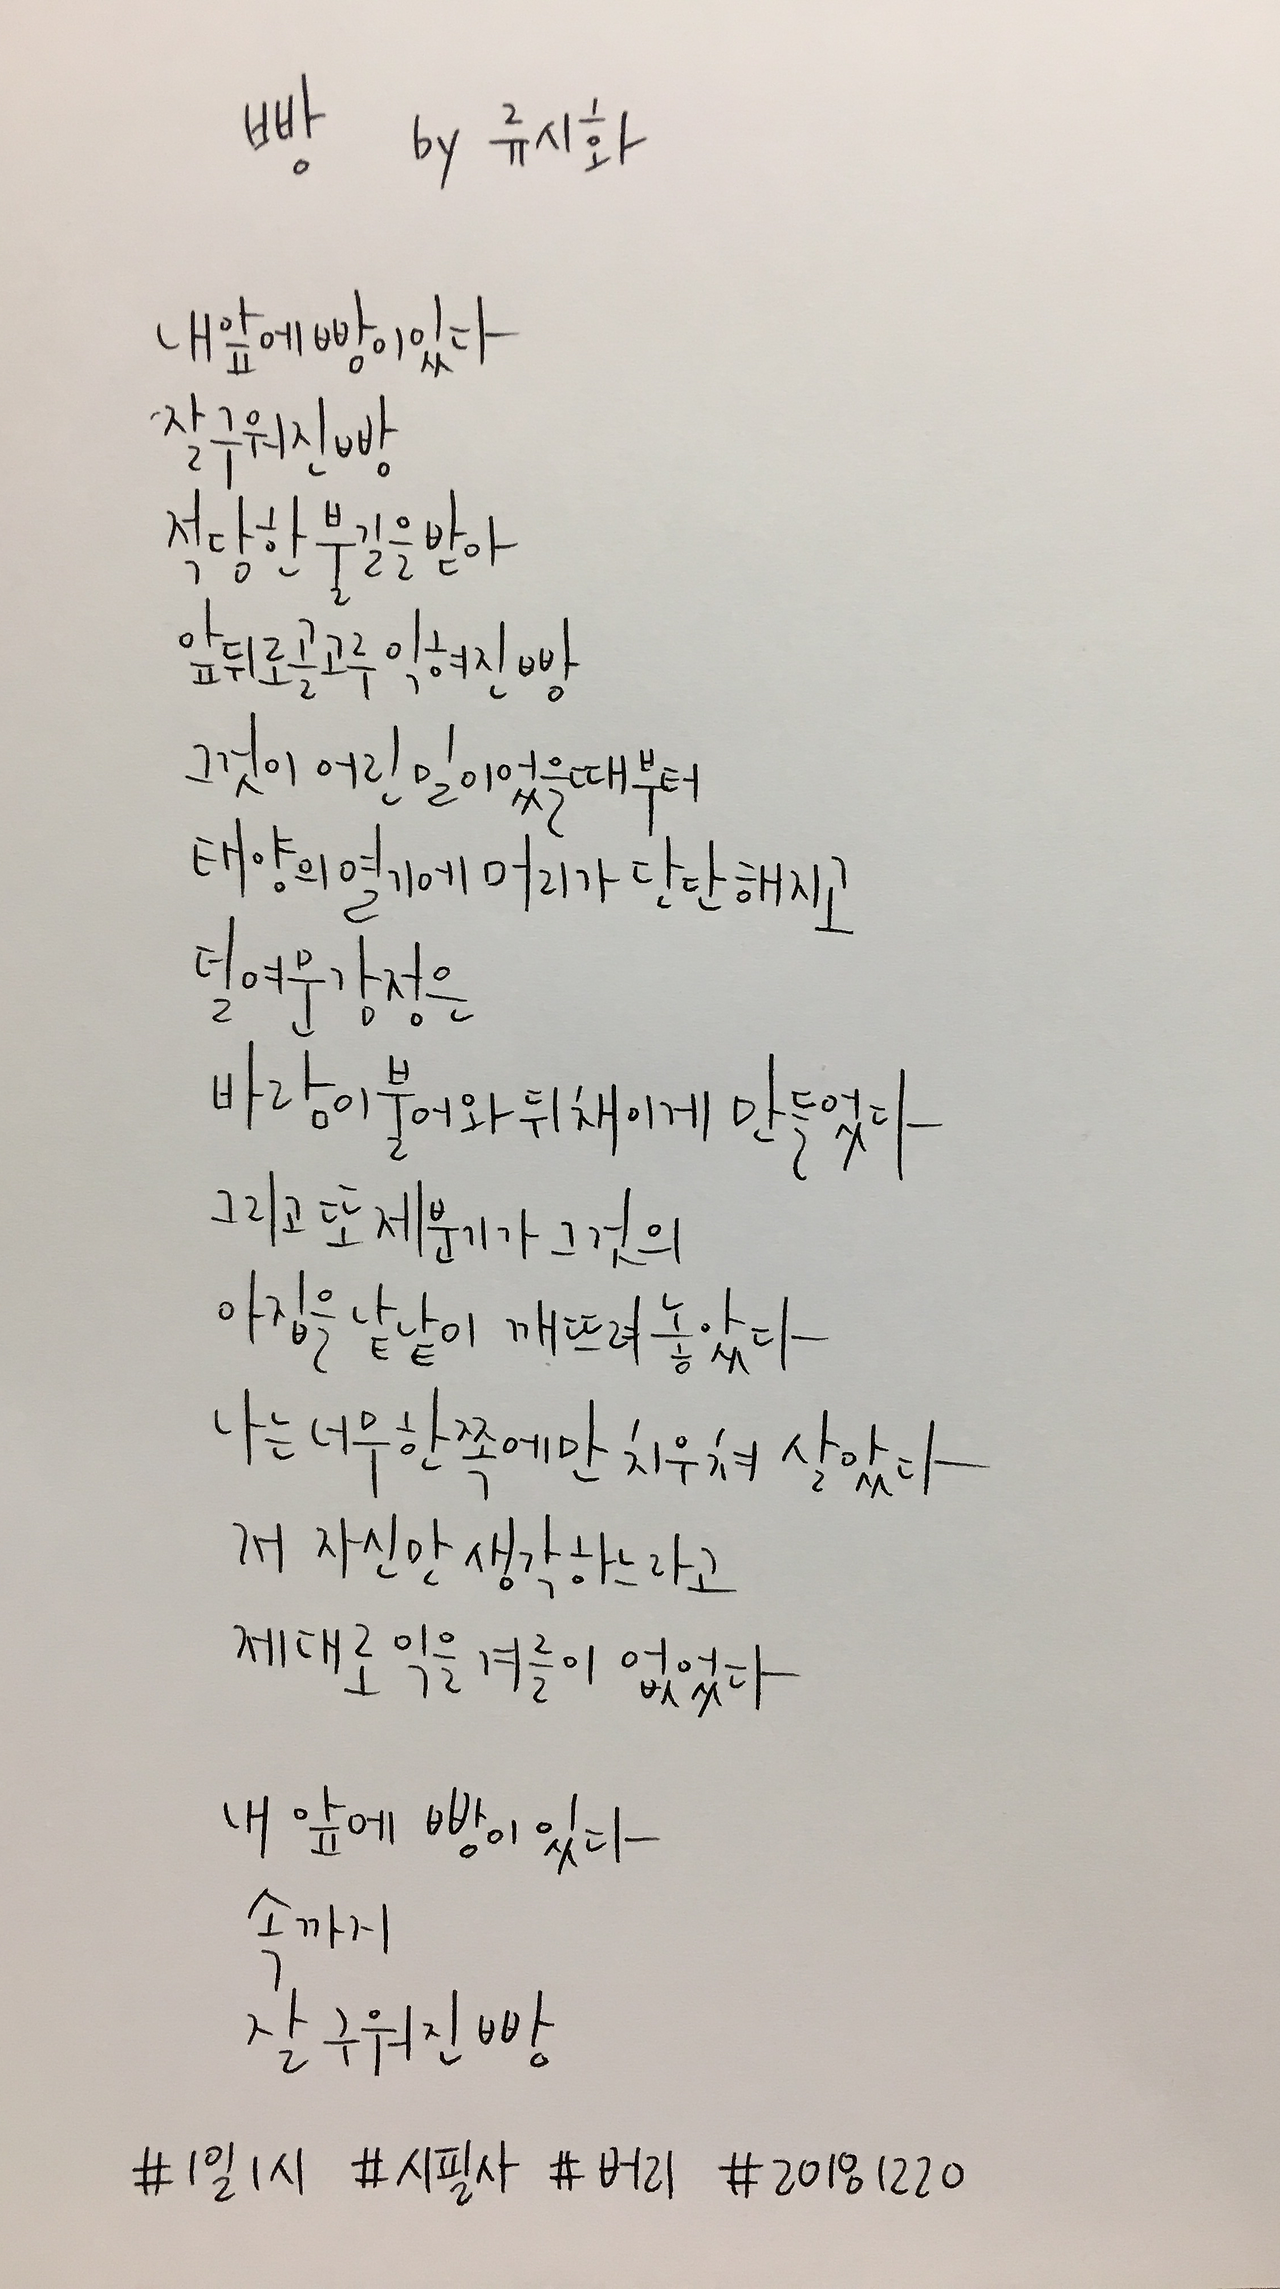 빵 by 류시화
내 앞에 빵이 있다
잘 구워진 빵
적당한 불길을 받아
앞뒤로 골고루 익혀진 빵
그것이 어린 밀이었을 때부터
태양의 열기에 머리가 단단해지고
덜 여문 감정은
바람이 불어와 뒤채이게 만들었다
그리고 또 제분기가 그것의
아집을 낱낱이 깨뜨려 놓았다
나는 너무 한쪽에만 치우쳐 살았다
저 자신만 생각하느라고
제대로 익을 겨를이 없었다
내 앞에 빵이 있다
속까지
잘 구워진 빵
#1일1시 #시필사 #버리 #20181220